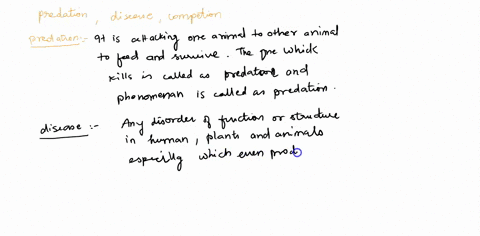 predation, disease, competion
predation:- It is attacking one animal to other animal
to feed and survive. The one which
kills is called as predator and
phenomenan is called as predation.
disease:- Any disorder of function or structure
in human, plants and animals
especially which even prod